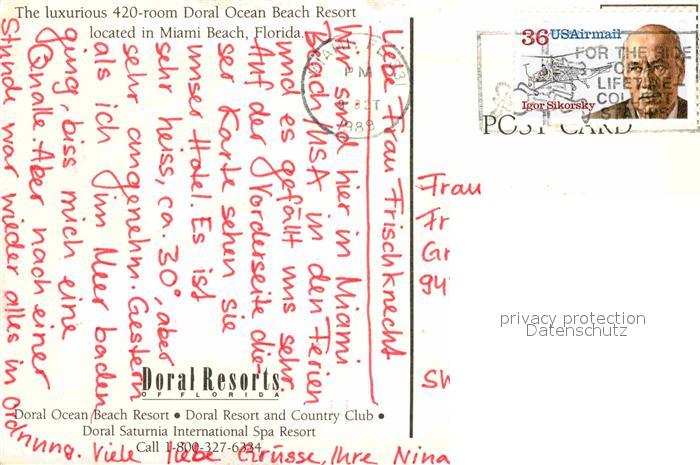 The luxurious 420-room Doral Ocean Beach Resort
located in Miami Beach, Florida.
Liebe Frau Frischknecht
Wir sind hier in Miami
Beach/USA in den Ferien
und es gefällt uns sehr
Auf der Vorderseite die-
ser Karte sehen sie
unser Hotel. Es ist
sehr heiss, ca. 30°, aber
sehr angenehm. Gestern
als ich im Meer baden
ging, biss mich eine
Qualle. Aber nach einer
Stunde war wieder alles in Ordnung.
Viele liebe Grüsse, Ihre Nina
36 USAirmail
Igor Sikorsky
FOR THE
LIFETIME
PM
OCT
1989
POST CARD
Frau
Fr
Gr
94
SW
privacy protection
Datenschutz
Doral Resorts
OF FLORIDA
Doral Ocean Beach Resort • Doral Resort and Country Club •
Doral Saturnia International Spa Resort
Call 1-800-327-6334